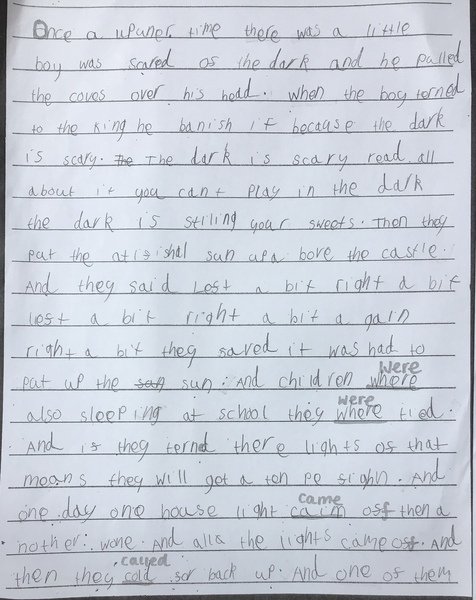 Once a upuner time there was a little
boy was scared of the dark and he pulled
the coves over his head. When the boy terned
to the King he banish it because the dark
is scary. The The dark is scary read all
about it you cant Play in the dark
the dark is stiling your sweets. Then they
Put the atisishal sun upa bove the castle.
And they said Lest a bit right a bit
lest a bit right a bit a gain
right a bit they saved it was had to
were
Put up the sun sun. And children where
were
also sleeping at school they where tied.
And is they ternd there lights of that
means they will got a ton pe sighn. And
came
one day one house light caim off then a
nother. wone. And alla the lights came off. And
called
then they cold sor back up. And one of them